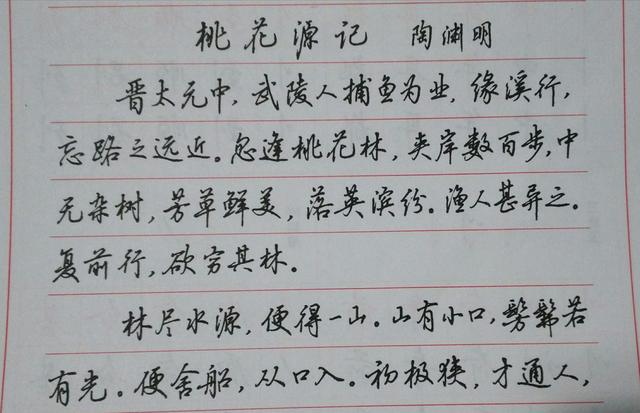 桃花源记 陶渊明
晋太元中，武陵人捕鱼为业，缘溪行，
忘路之远近。忽逢桃花林，夹岸数百步，中
无杂树，芳草鲜美，落英滨纷。渔人甚异之。
复前行，欲穷其林。
林尽水源，便得一山。山有小口，髣髴若
有光。便舍船，从口入。初极狭，才通人，